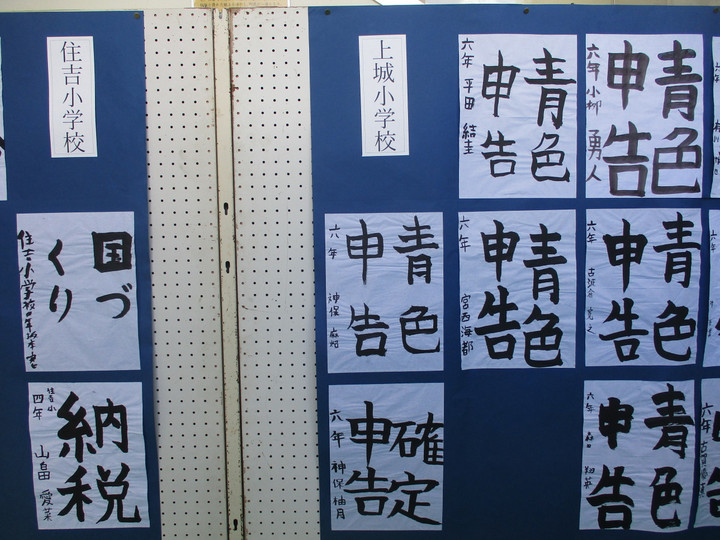 住吉小学校
国づ
くり
納税
住吉小
四年 山畠 愛菜
上城小学校
青色
申告
六年 平田 結圭
青色
申告
六年 小柳 勇人
青色
申告
六年 神保
青色
申告
六年 宮西海都
青色
申告
六年
確定
申告
六年 神保 柚月
青色
申告
六年
六年